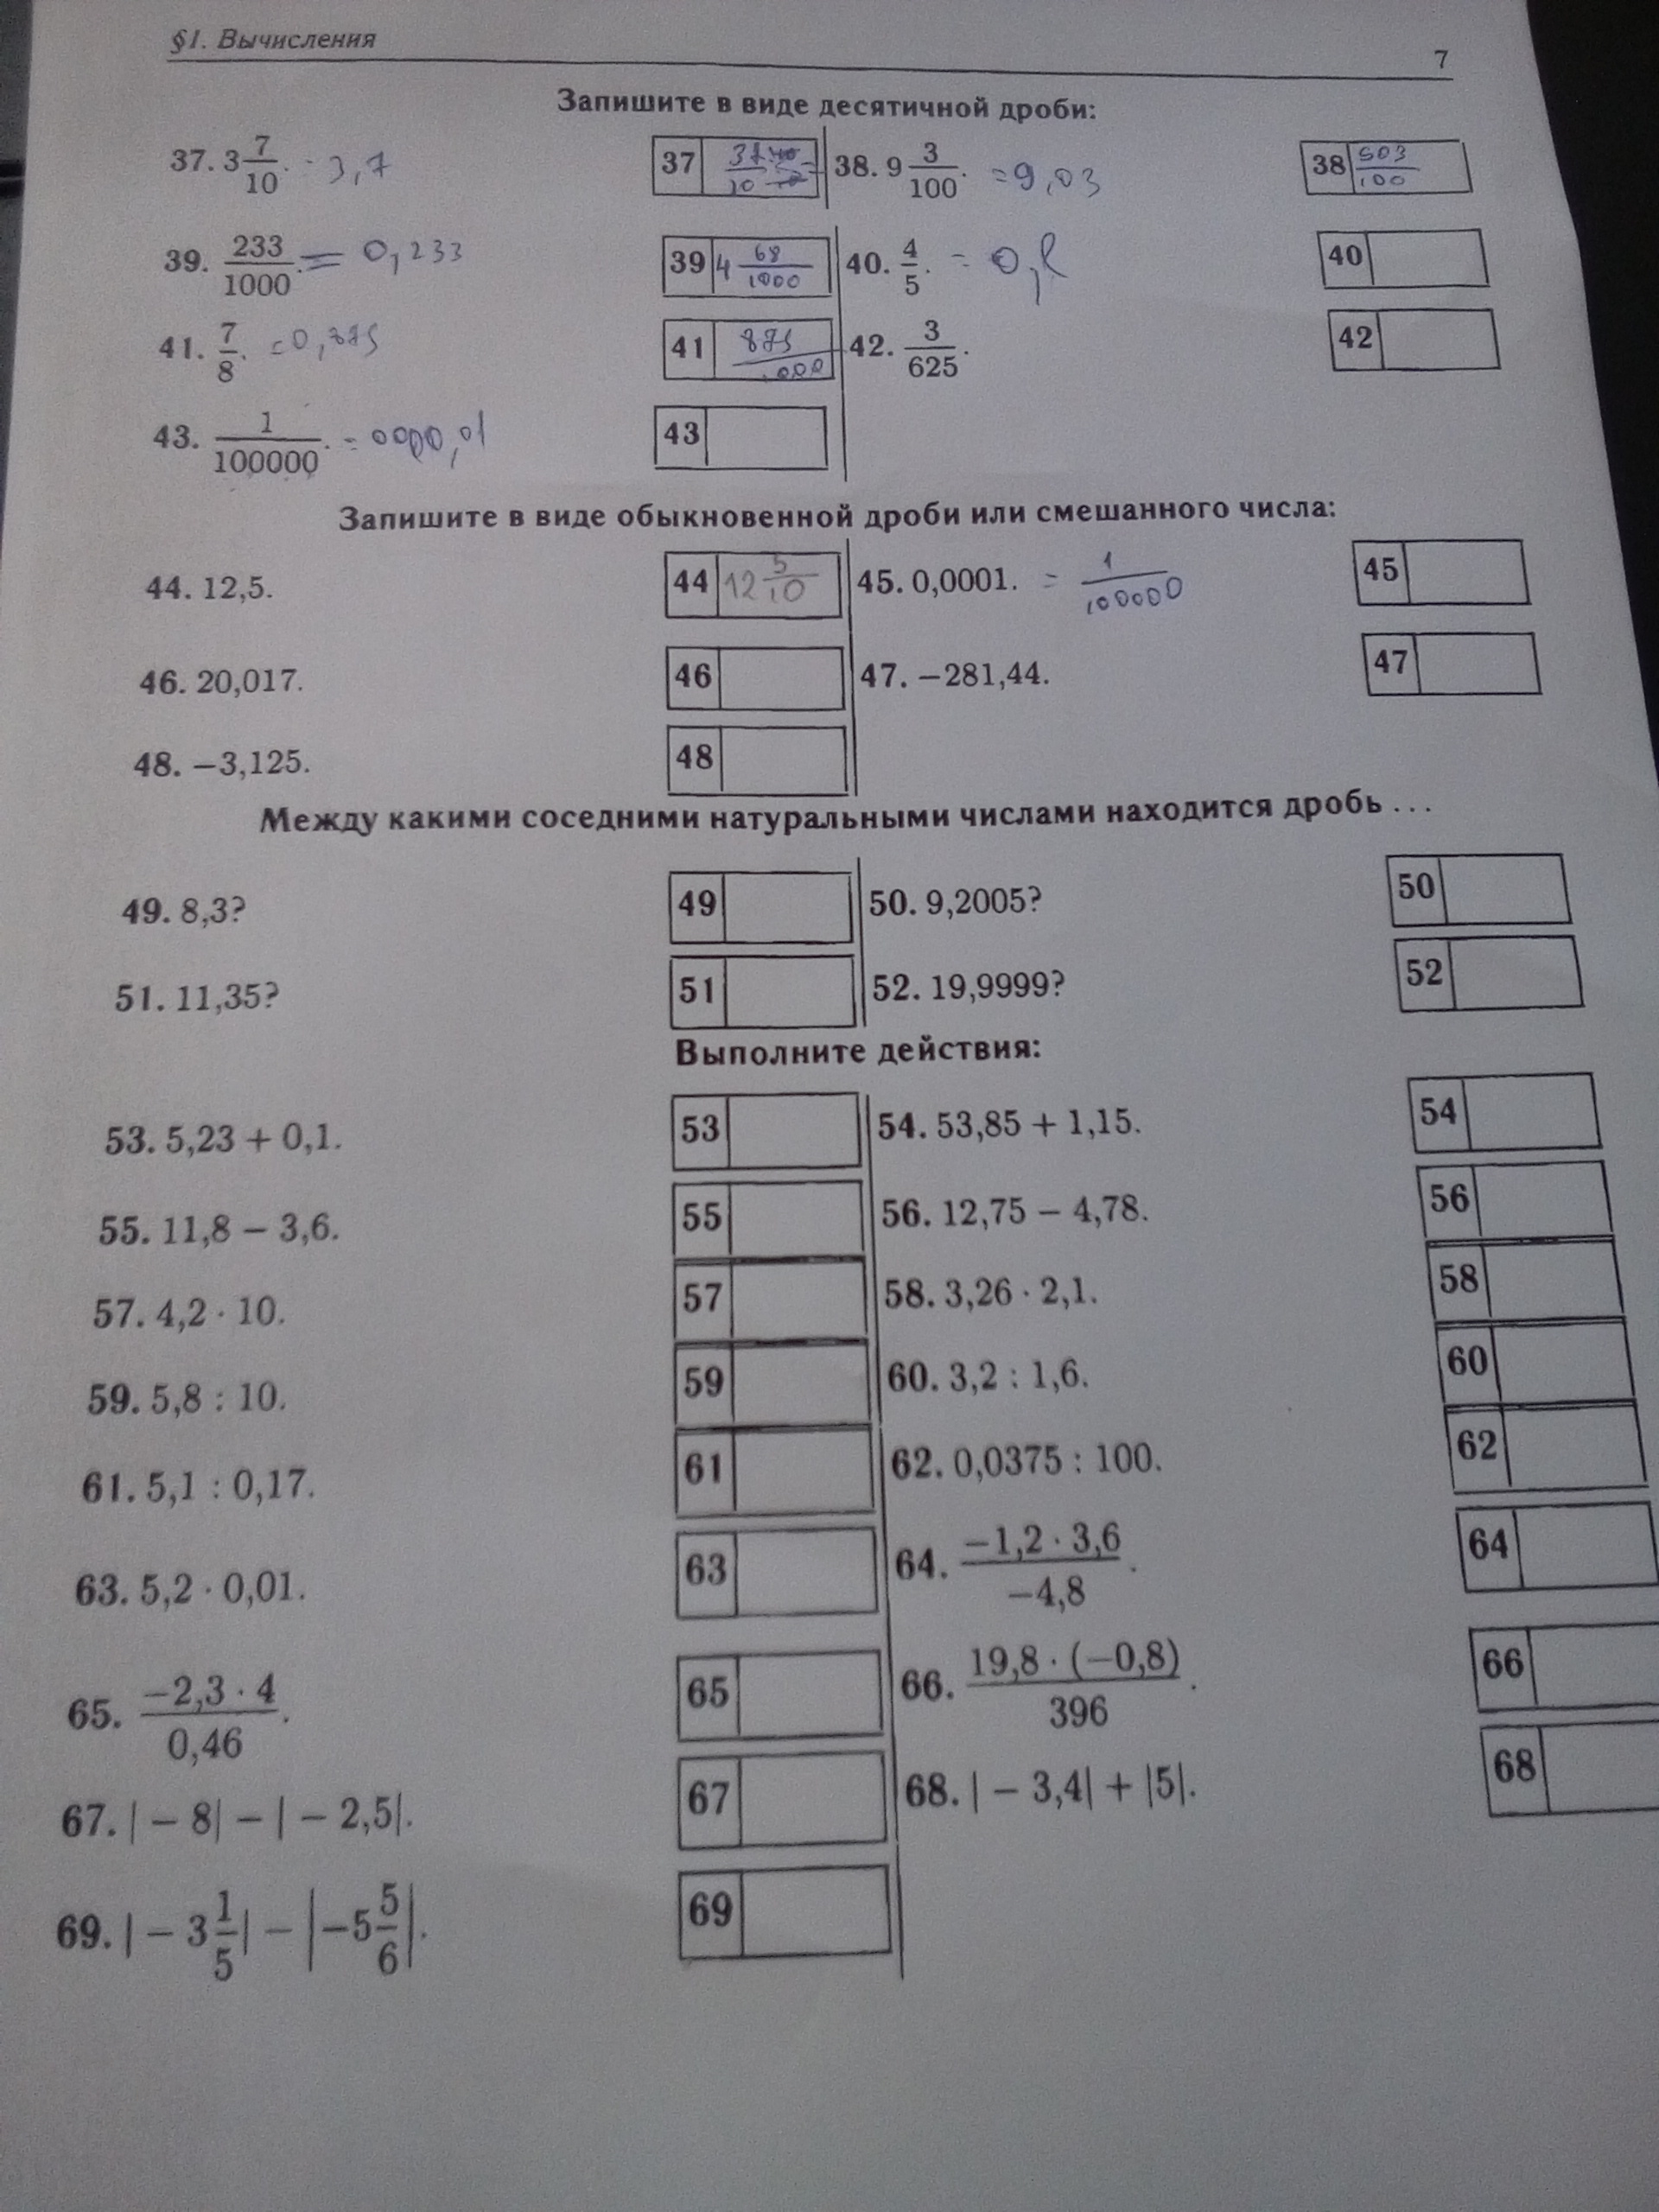 §1. Вычисления
7
Запишите в виде десятичной дроби:
37. 3 7/10. = 3,7
37 | 37/10
38. 9 3/100. = 9,03
38 | 903/100
39. 233/1000. = 0,233
39 | 4 68/1000
40. 4/5. = 0,8
40
41. 7/8. = 0,875
41 | 875/1000
42. 3/625.
42
43. 1/100000. = 0000,01
43
Запишите в виде обыкновенной дроби или смешанного числа:
44. 12,5.
44 | 12 5/10
45. 0,0001. = 1/100000
45
46. 20,017.
46
47. −281,44.
47
48. −3,125.
48
Между какими соседними натуральными числами находится дробь ...
49. 8,3?
49
50. 9,2005?
50
51. 11,35?
51
52. 19,9999?
52
Выполните действия:
53. 5,23 + 0,1.
53
54. 53,85 + 1,15.
54
55. 11,8 − 3,6.
55
56. 12,75 − 4,78.
56
57. 4,2 · 10.
57
58. 3,26 · 2,1.
58
59. 5,8 : 10.
59
60. 3,2 : 1,6.
60
61. 5,1 : 0,17.
61
62. 0,0375 : 100.
62
63. 5,2 · 0,01.
63
64. −1,2 · 3,6 / −4,8.
64
65. −2,3 · 4 / 0,46.
65
66. 19,8 · (−0,8) / 396.
66
67. | − 8| − | − 2,5|.
67
68. | − 3,4| + |5|.
68
69. | − 3 1/5| − |−5 5/6|.
69